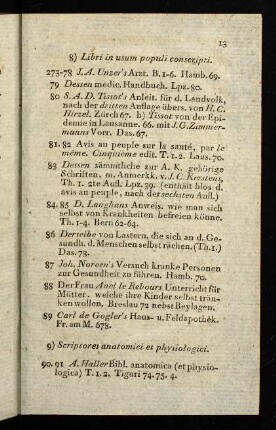 13
8) Libri in usum populi conscripti.
273-78 J. A. Unzer's Arzt. B. 1-6. Hamb. 69.
79 Dessen medic. Handbuch. Lpz. 80.
80 S. A. D. Tissot's Anleit. für d. Landvolk,
nach der dritten Auflage übers. von H. C.
Hirzel. Zürch 67. b) Tissot von der Epi-
demie in Lausanne. 66. mit J. G. Zimmer-
manns Vorr. Das. 67.
81. 82 Avis au peuple sur la santé, par le
même. Cinquième edit. T. 1. 2. Laus. 70.
83 Dessen sämmtliche zur A. K. gehörige
Schriften, m. Anmerkk. v. J. C. Kerstens,
Th. 1. 2te Aufl. Lpz. 39. (enthält blos d.
avis au peuple, nach der sechsten Aufl.)
84. 85 D. Langhans Anweis. wie man sich
selbst von Krankheiten befreien könne.
Th. 1-4. Bern 62-64.
86 Derselbe von Lastern, die sich an d. Ge-
sundh. d. Menschen selbst rächen. (Th. 1.)
Das. 73.
87 Joh. Noreen's Versuch kranke Personen
zur Gesundheit zu führen. Hamb. 70.
88 Der Frau Anel le Rebours Unterricht für
Mütter, welche ihre Kinder selbst trän-
ken wollen. Breslau 72 nebst Beylagen.
89 Carl de Gogler's Haus- u. Feldapothek.
Fr. am M. 678.
9) Scriptores anatomici et physiologici.
90. 91 A. Haller Bibl. anatomica (et physio-
logica) T. 1. 2. Tiguri 74. 75. 4.